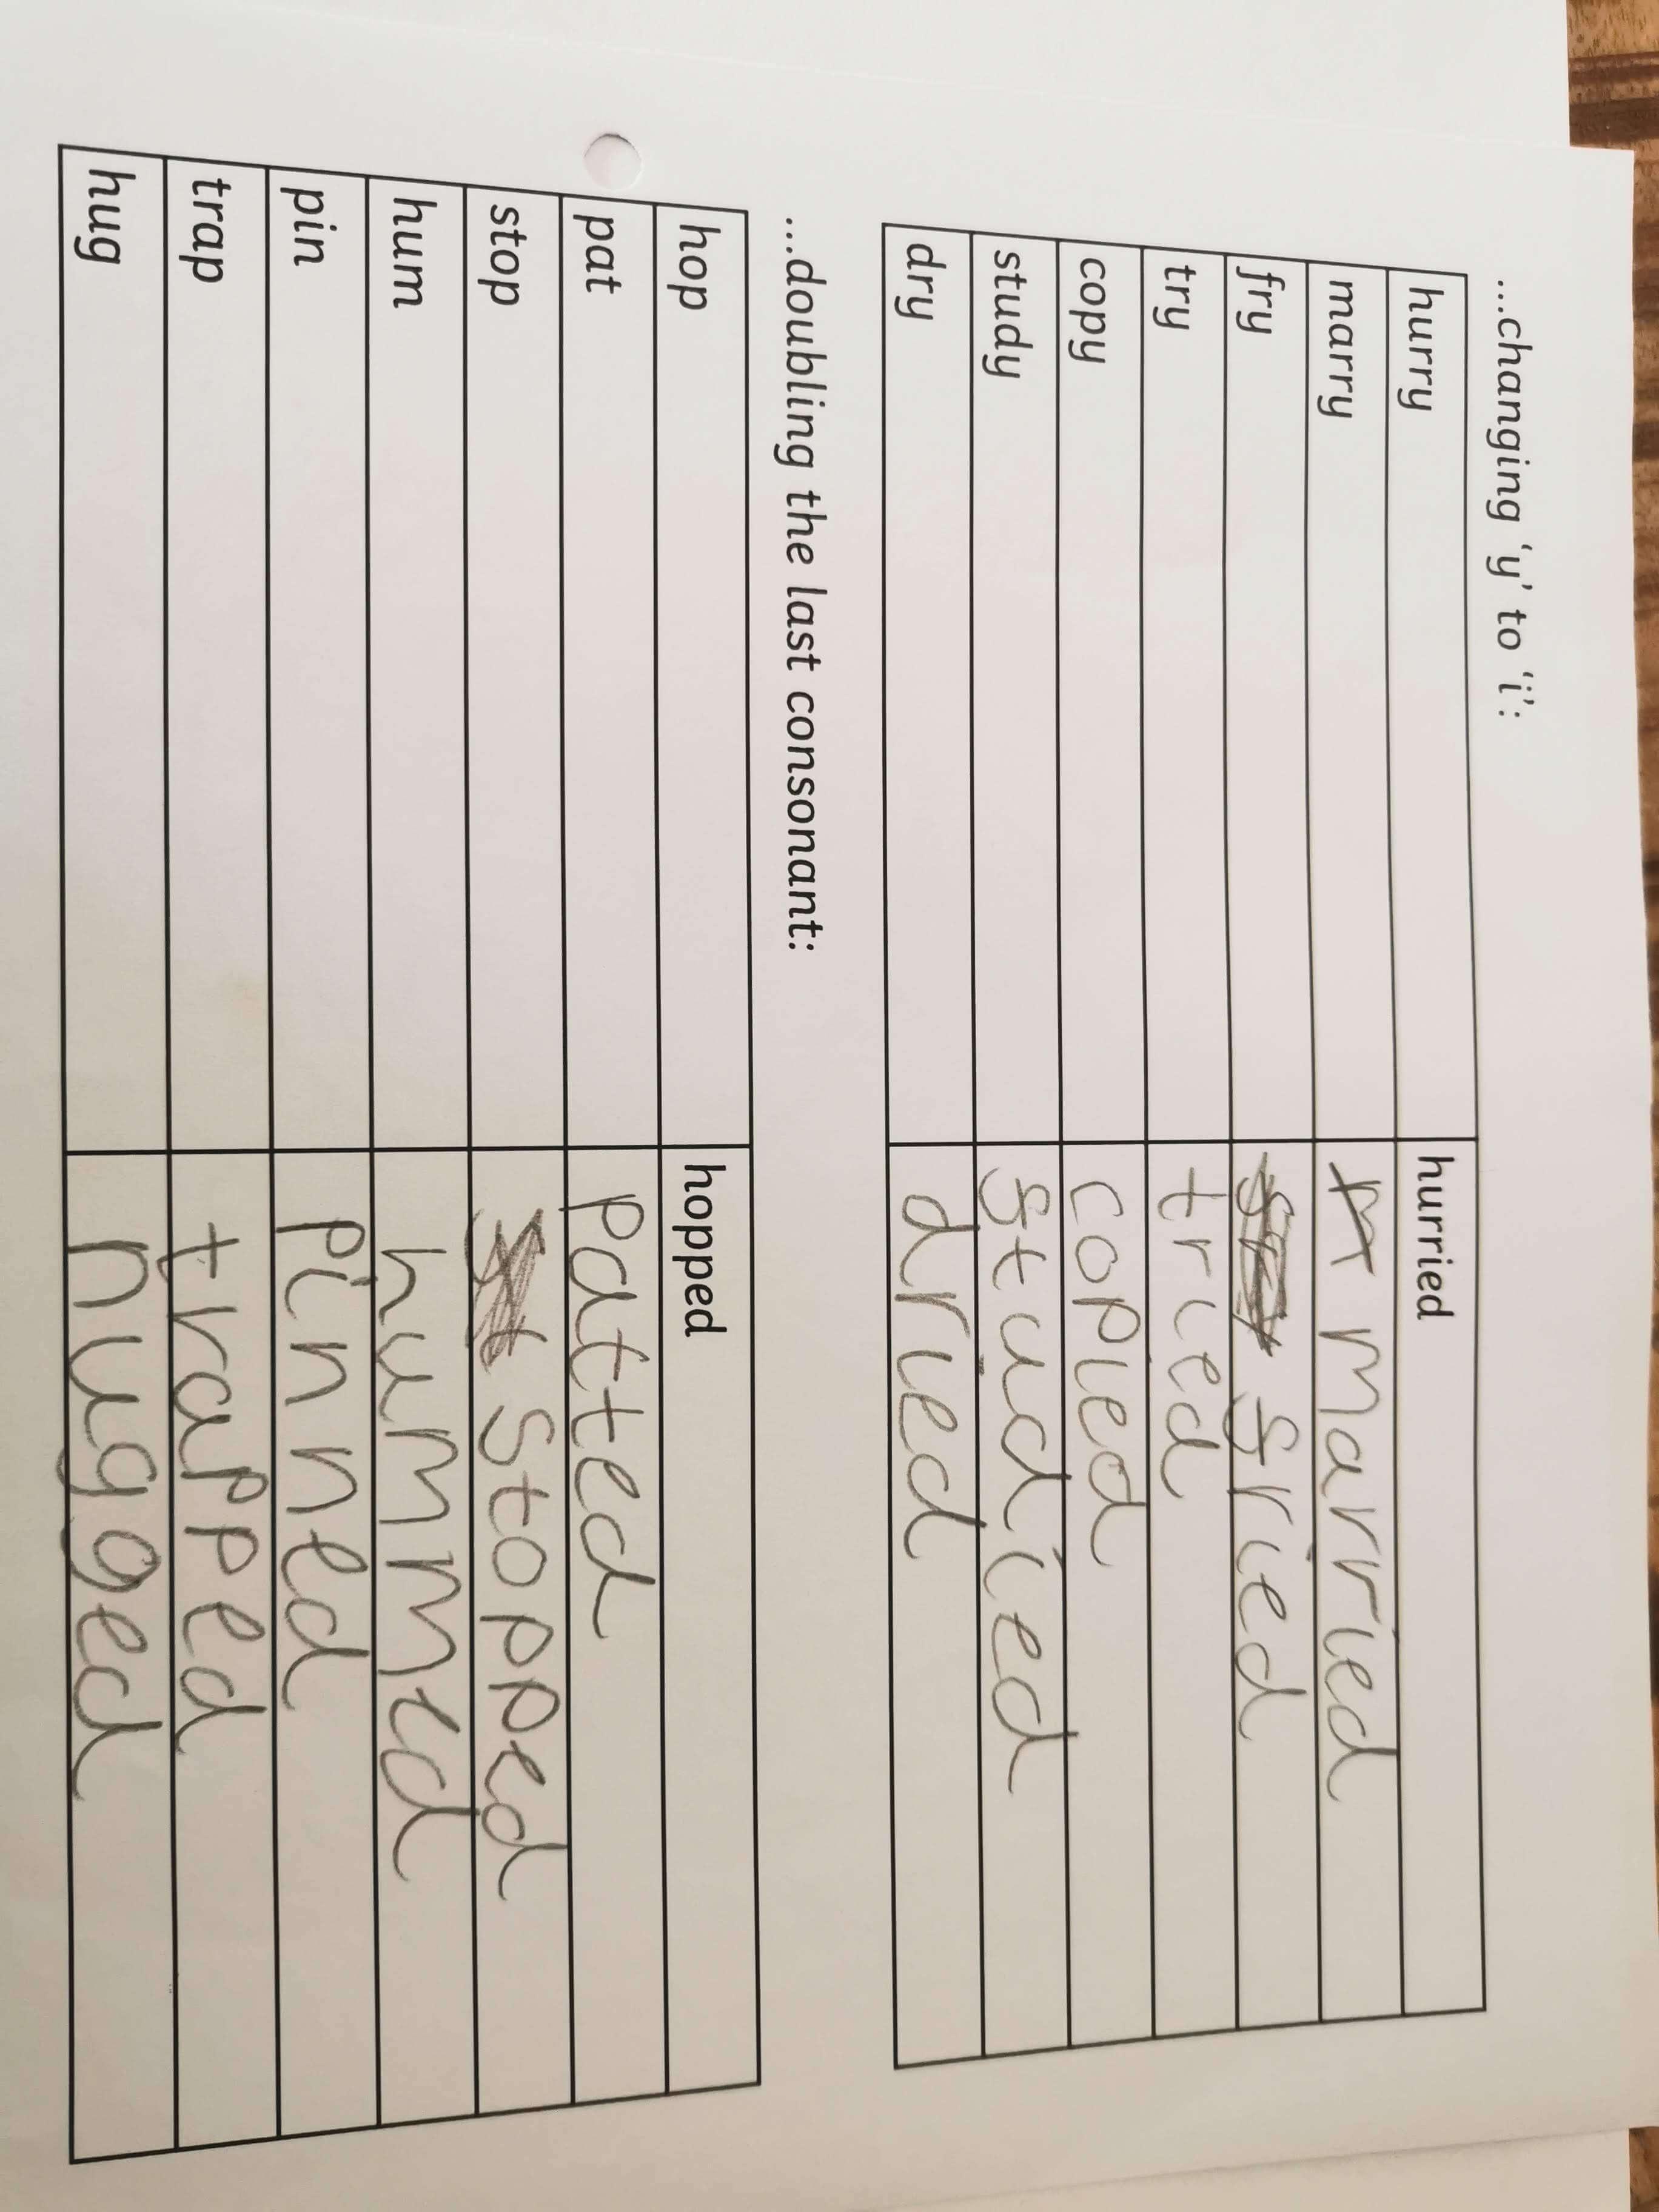 ...changing 'y' to 'i':
hurry hurried
marry married
fry fried
try tried
copy copied
study studied
dry dried
...doubling the last consonant:
hop hopped
pat patted
stop stopped
hum hummed
pin pinned
trap trapped
hug hugged